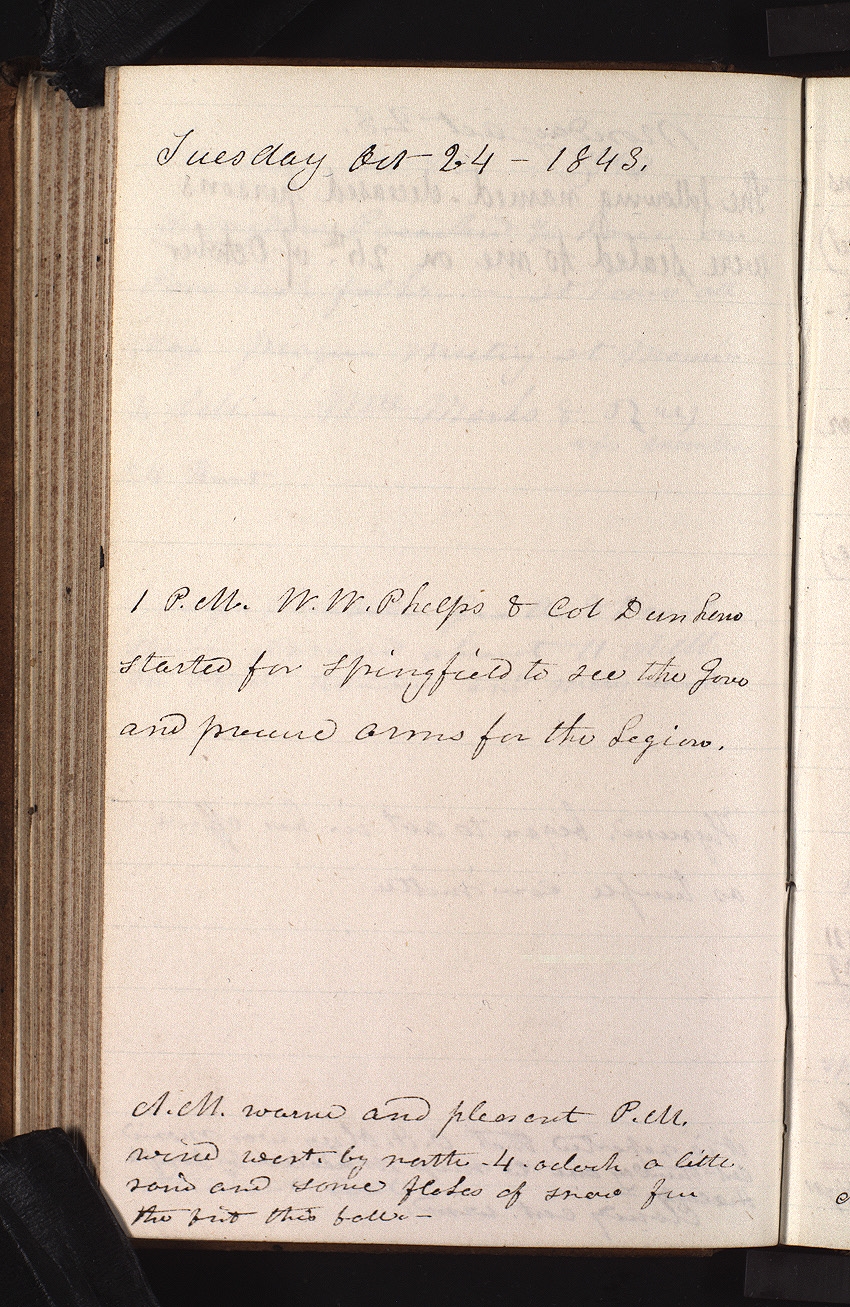 Tuesday Oct 24 - 1843.
1 P.M. W.W. Phelps & Col Dunham
started for Springfield to see the Gove
and procure arms for the Legion.
A.M. warm and pleasant P.M.
wind west. by north. 4. oclock a little
rain and some flakes of snow
the first this fall. -